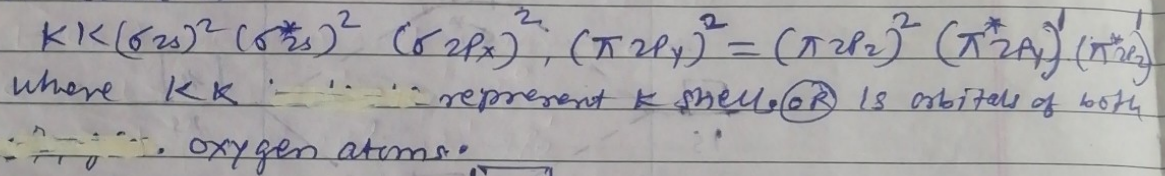 KK(σ2s)² (σ*2s)² (σ2Px)², (π2Py)² = (π2Pz)² (π*2Py)¹ (π*2Pz)¹
where KK represent K shells OR 1s orbitals of both
oxygen atoms.